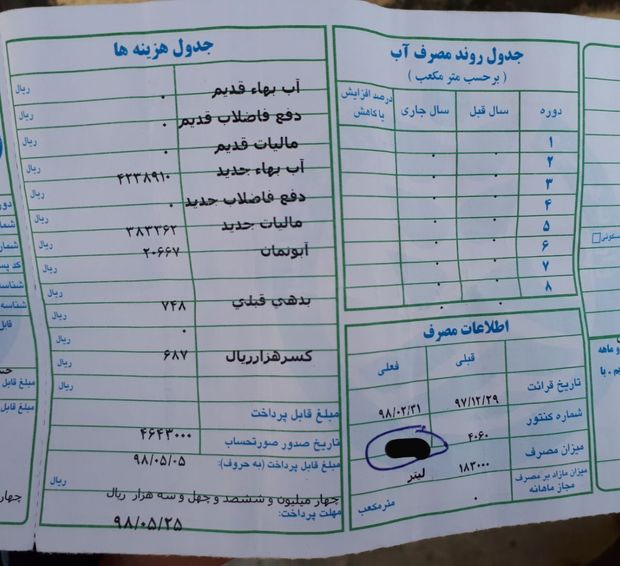 جدول روند مصرف آب
( برحسب متر مکعب )
دوره سال قبل سال جاری درصد افزایش یا کاهش
۱ . .
۲ . .
۳ . .
۴ . .
۵ . .
۶ . .
۷ . .
۸ . .
اطلاعات مصرف
قبلی فعلی
تاریخ قرائت ۹۷/۱۲/۲۹ ۹۸/۰۲/۳۱
شماره کنتور ۴۰۶۰
میزان مصرف ۱۸۳۰۰۰ لیتر
میزان مازاد بر مصرف مجاز ماهانه . مترمکعب
جدول هزینه ها
آب بهاء قدیم . ریال
دفع فاضلاب قدیم . ریال
مالیات قدیم . ریال
آب بهاء جدید ۴۲۳۸۹۱۰ ریال
دفع فاضلاب جدید . ریال
مالیات جدید ۳۸۳۳۶۲ ریال
آبونمان ۲۰۶۶۷ ریال
ریال
بدهی قبلی ۷۴۸ ریال
. ریال
کسرهزارریال ۶۸۷ ریال
ریال
مبلغ قابل پرداخت ۴۶۴۳۰۰۰
تاریخ صدور صورتحساب ۹۸/۰۵/۰۵
مبلغ قابل پرداخت (به حروف):
چهار میلیون و ششصد و چهل و سه هزار ریال ریال
مهلت پرداخت: ۹۸/۰۵/۲۵